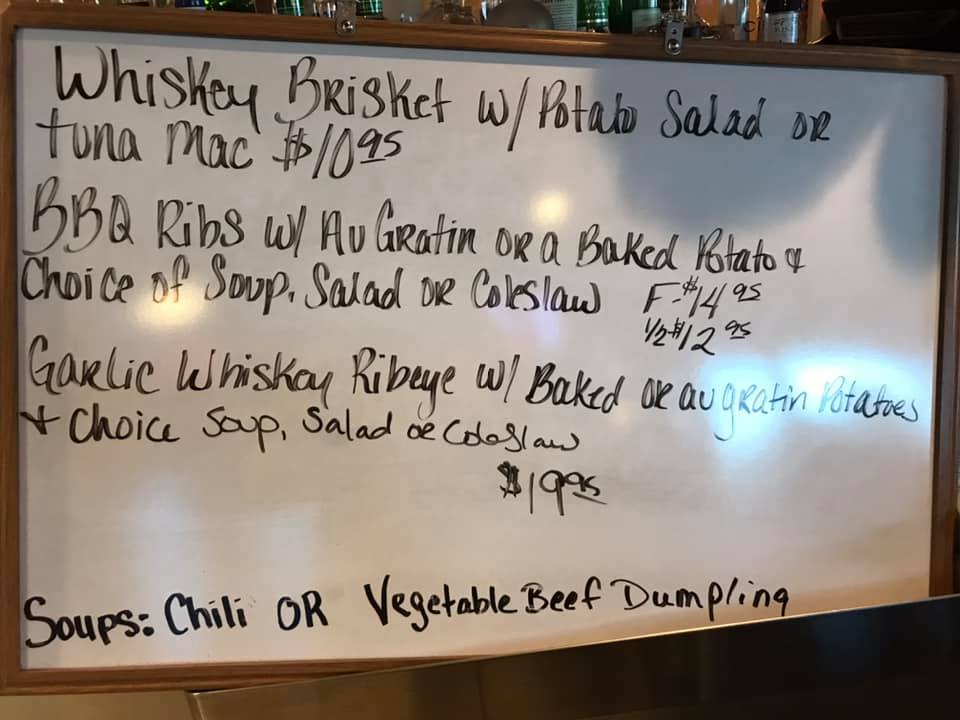 Whiskey Brisket w/ Potato Salad or
tuna mac $10.95
BBQ Ribs w/ Au Gratin or a Baked Potato &
Choice of Soup, Salad or Coleslaw F-$14.95
1/2-$12.95
Garlic Whiskey Ribeye w/ Baked or au gratin Potatoes
+ Choice Soup, Salad or Coleslaw
$19.95
Soups: Chili OR Vegetable Beef Dumpling